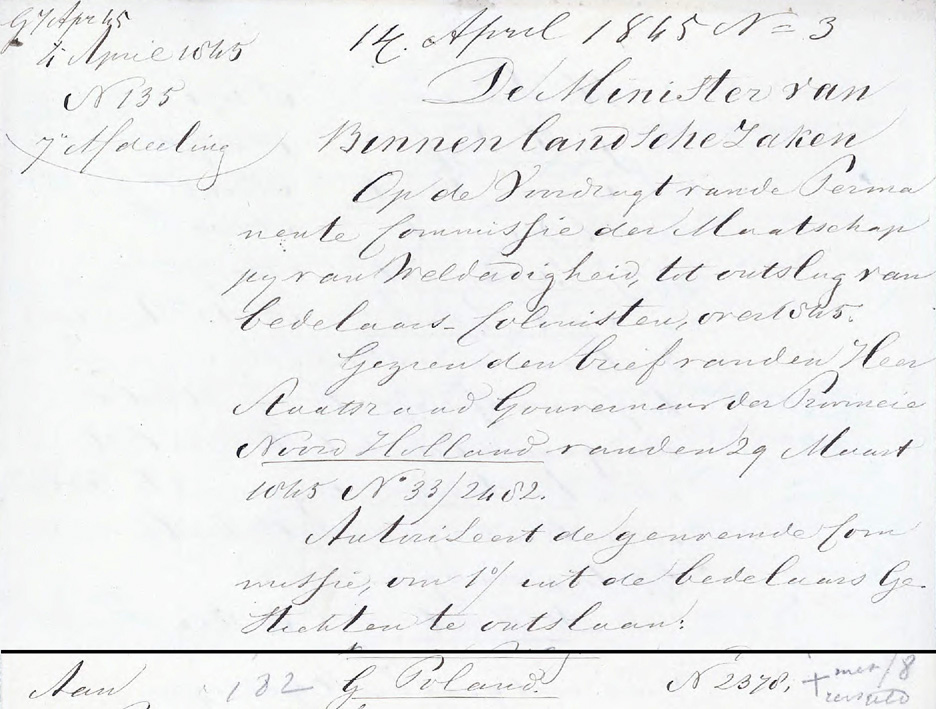 G 7 Apr 45
4 April 1845
N 135
7e Afdeeling
14 April 1845 N = 3
De Minister van
Binnenlandsche Zaken
Op de Voordragt van de Perma
nente Commissie der Maatschap
py van Weldadigheid, tot ontslag van
bedelaars-Colonisten, over 1845.
Gezien den brief van den Heer
Staatsraad Gouverneur der Provincie
Noord Holland van den 29 Maart
1845 No 33/2482.
Autoriseert de genoemde Com
missie, om 1o/ uit de bedelaars Ge-
stichten te ontslaan:
Aan 182 G Poland. N 2378. +